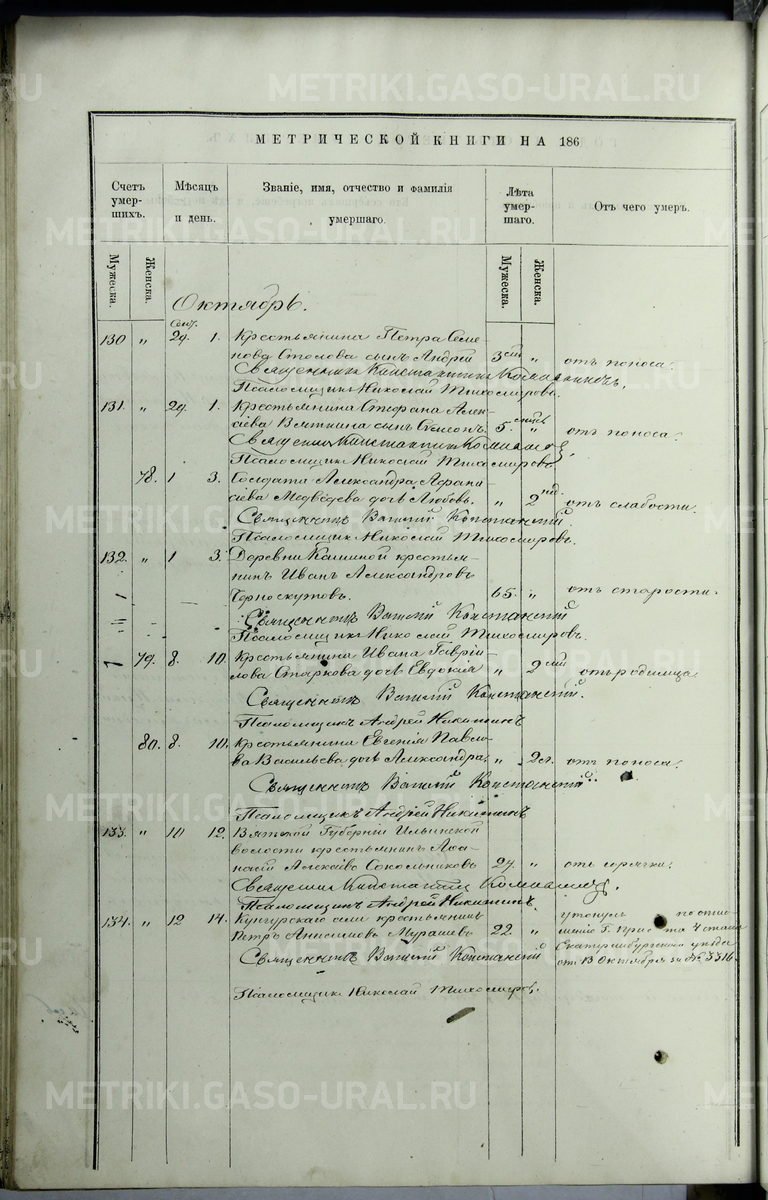 METRIKI.GASO-URAL.RU
МЕТРИЧЕСКОЙ КНИГИ НА 186
Счетъ умер-шихъ.
Мѣсяцъ и день.
Званіе, имя, отчество и фамилія умершаго.
Лѣта умер-шаго.
Отъ чего умеръ.
Мужеска.
Женска.
Мужеска.
Женска.
Октябрь.
Сент.
130 " 29. 1. Крестьянина Петра Семе
нова сынъ Андрей 3 " отъ поноса.
Священникъ Константинъ
Псаломщикъ Николай Тихомировъ.
131. " 29. 1. Крестьянина Стефана Алек-
сіева Вяткина сынъ Симеонъ 5. " отъ поноса.
Священникъ Константинъ
Псаломщикъ Николай Тихомировъ
78. 1 3. Солдата Александра Афана
сіева Медведева дочь Любовь. " 2 нд. отъ слабости.
Священникъ Василій
Псаломщикъ Николай Тихомировъ.
132. " 1 3. Деревни крестья-
нинъ Иванъ Александровъ
Черноскутовъ. 65. " отъ старости.
Священникъ Василій
Псаломщикъ Николай Тихомировъ.
79. 8. 10. Крестьянина Ивана Гаврі-
лова Старкова дочь Евдокія " 2 отъ родимца
Священникъ Василій
Псаломщикъ Андрей Никитинъ
80. 8. 10. Крестьянина Евгенія Павло-
ва Васильева дочь Александра. " 2 отъ поноса.
Священникъ Василій
Псаломщикъ Андрей Никитинъ
133. " 10 12. Вятской Губерніи Ильинской
волости крестьянинъ Афа-
насій Алексіевъ Сокольниковъ 27. " отъ горячки.
Священникъ Константинъ
Псаломщикъ Андрей Никитинъ.
134. " 12 14. Кунгурскаго села крестьянинъ
Петръ Анисимовъ Мурашевъ 22. " утонулъ по отно
шенію Г. Пристава 4 стана
Екатеринбургскаго уѣзда
отъ 13 Октября за № 3316.
Священникъ Василій
Псаломщикъ Николай Тихомировъ.